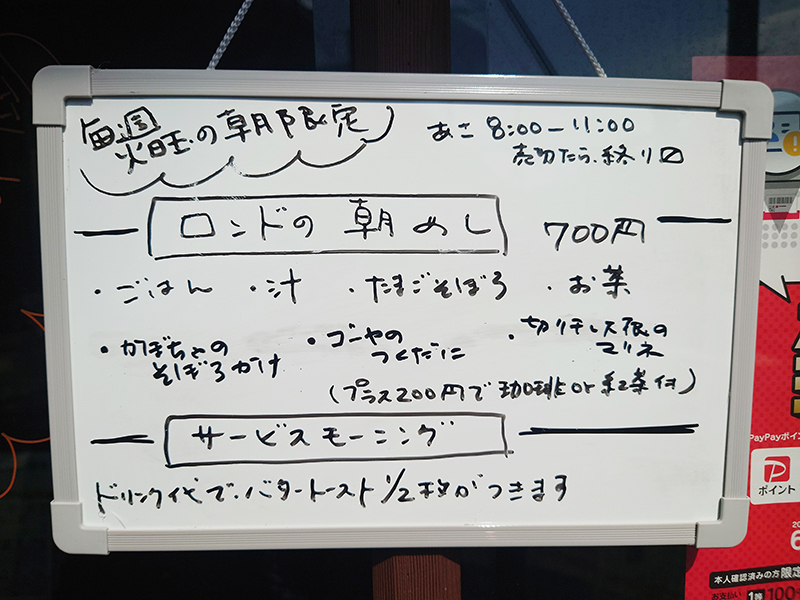 毎週
火曜の朝限定
あさ 8:00-11:00
売切たら、終り〼
ロンドの 朝めし 700円
・ごはん ・汁 ・たまごそぼろ ・お茶
・かぼちゃの
そぼろかけ
・ゴーヤの
つくだに
・切り干し大根の
マリネ
(プラス200円で 珈琲or紅茶付)
サービスモーニング
ドリンク代で、バタートースト1/2枚がつきます
PayPayポイン
ポイント
本人確認済みの方限定
お支払い 1等 100